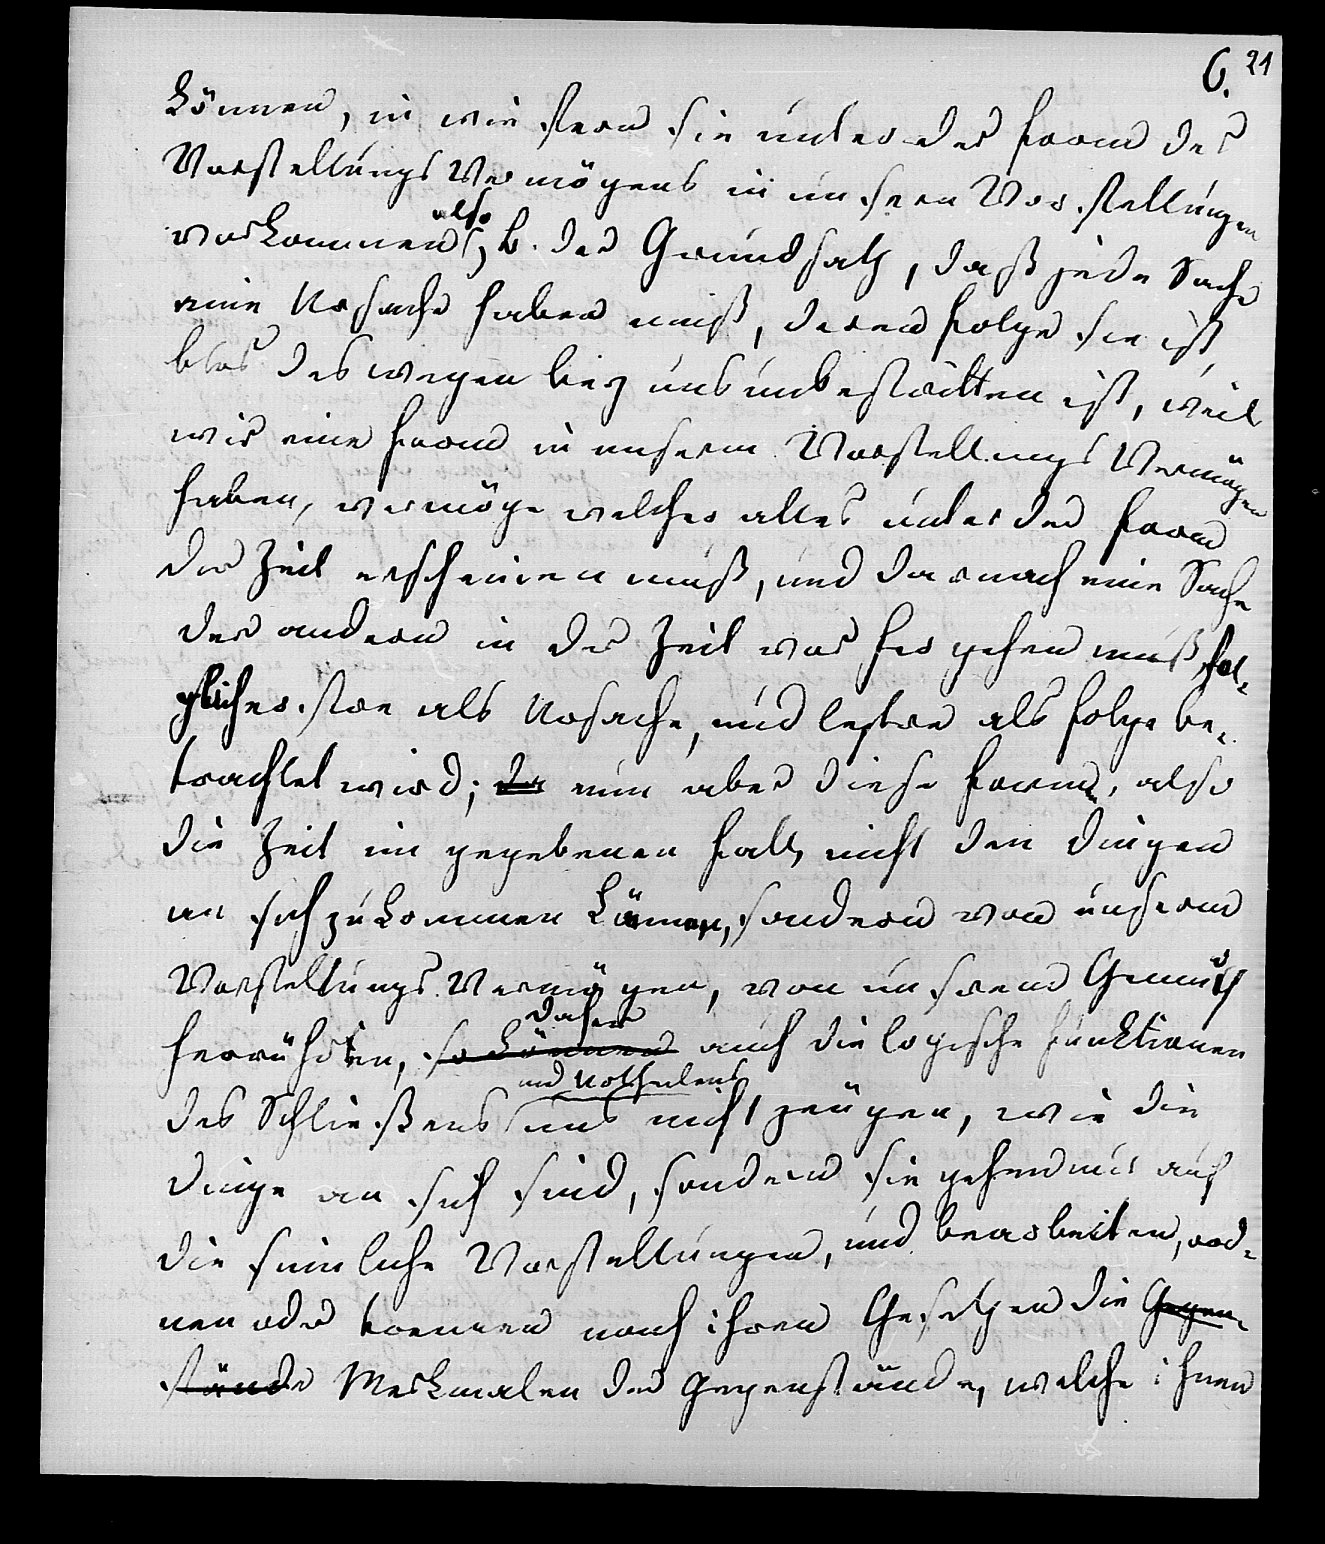 6. 21
können, in wie fern sie unter der Form des
Vorstellungs Vermögens in unsern Vorstellungen
vorkommen, also z. b. der Grundsatz, daß jede Sache
eine Ursache haben muß, deren Folge sie ist,
blos deswegen bey uns unbestritten ist, weil
wir eine Form in unserm Vorstellungs Vermögen
haben, vermöge welcher alles unter der Form
der Zeit erscheinen muß, und darnach eine Sache
der andern in der Zeit vor her gehen muß, fol-
glich erstre als Ursache, und lestre als Folge be-
trachtet wird; da nun aber diese Form, also
die Zeit im gegebenen Fall, nicht den Dingen
an sich zukommen kann, sondern von unserm
Vorstellungs Vermögen, von unserm Gemüth
herrühren, so können daher auch die logische Funktionen
des Schließens und Urtheilens uns nicht zeugen, wie die
Dinge an sich sind, sondern sie gehen nur auf
die sinnliche Vorstellungen, und bearbeiten, ord-
nen oder trennen nach ihren Gesetzen die Gegen-
stände Merkmalen der Gegenstände, welche ihnen